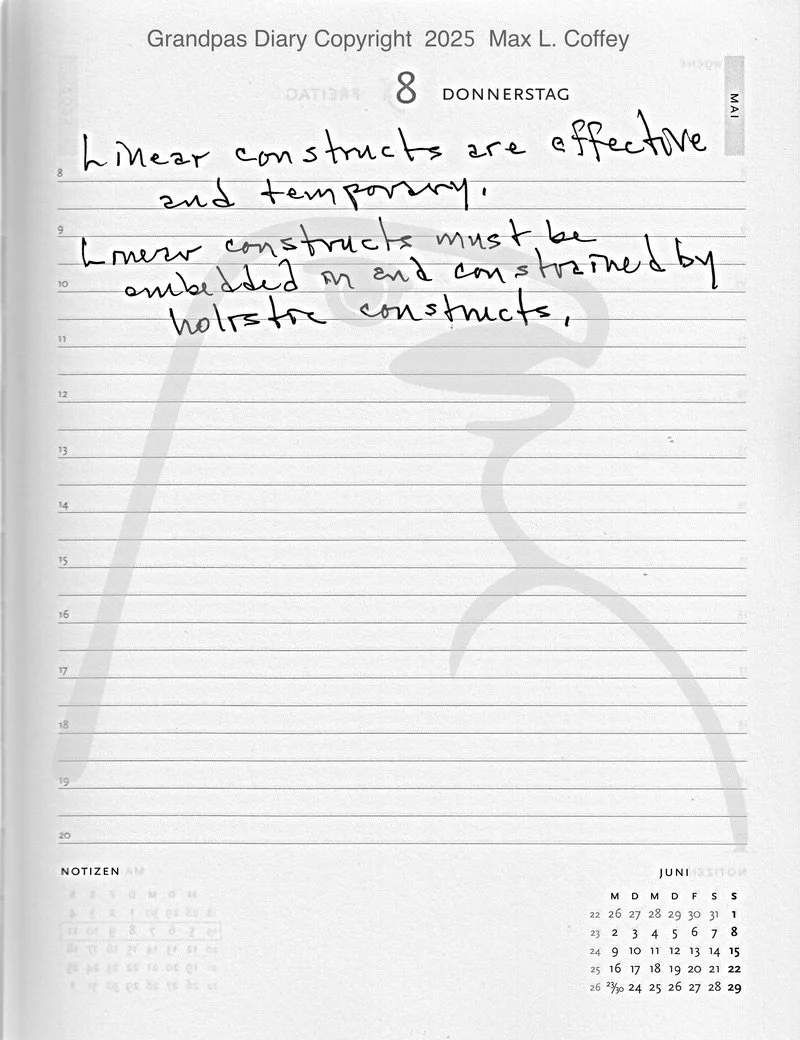 Grandpas Diary Copyright 2025 Max L. Coffey
8 DONNERSTAG
MAI
Linear constructs are effective
8
and temporary.
9
Linear constructs must be
10
embedded in and constrained by
holistic constructs.
11
12
13
14
15
16
17
18
19
20
NOTIZEN
JUNI
M D M D F S S
22 26 27 28 29 30 31 1
23 2 3 4 5 6 7 8
24 9 10 11 12 13 14 15
25 16 17 18 19 20 21 22
26 23/30 24 25 26 27 28 29